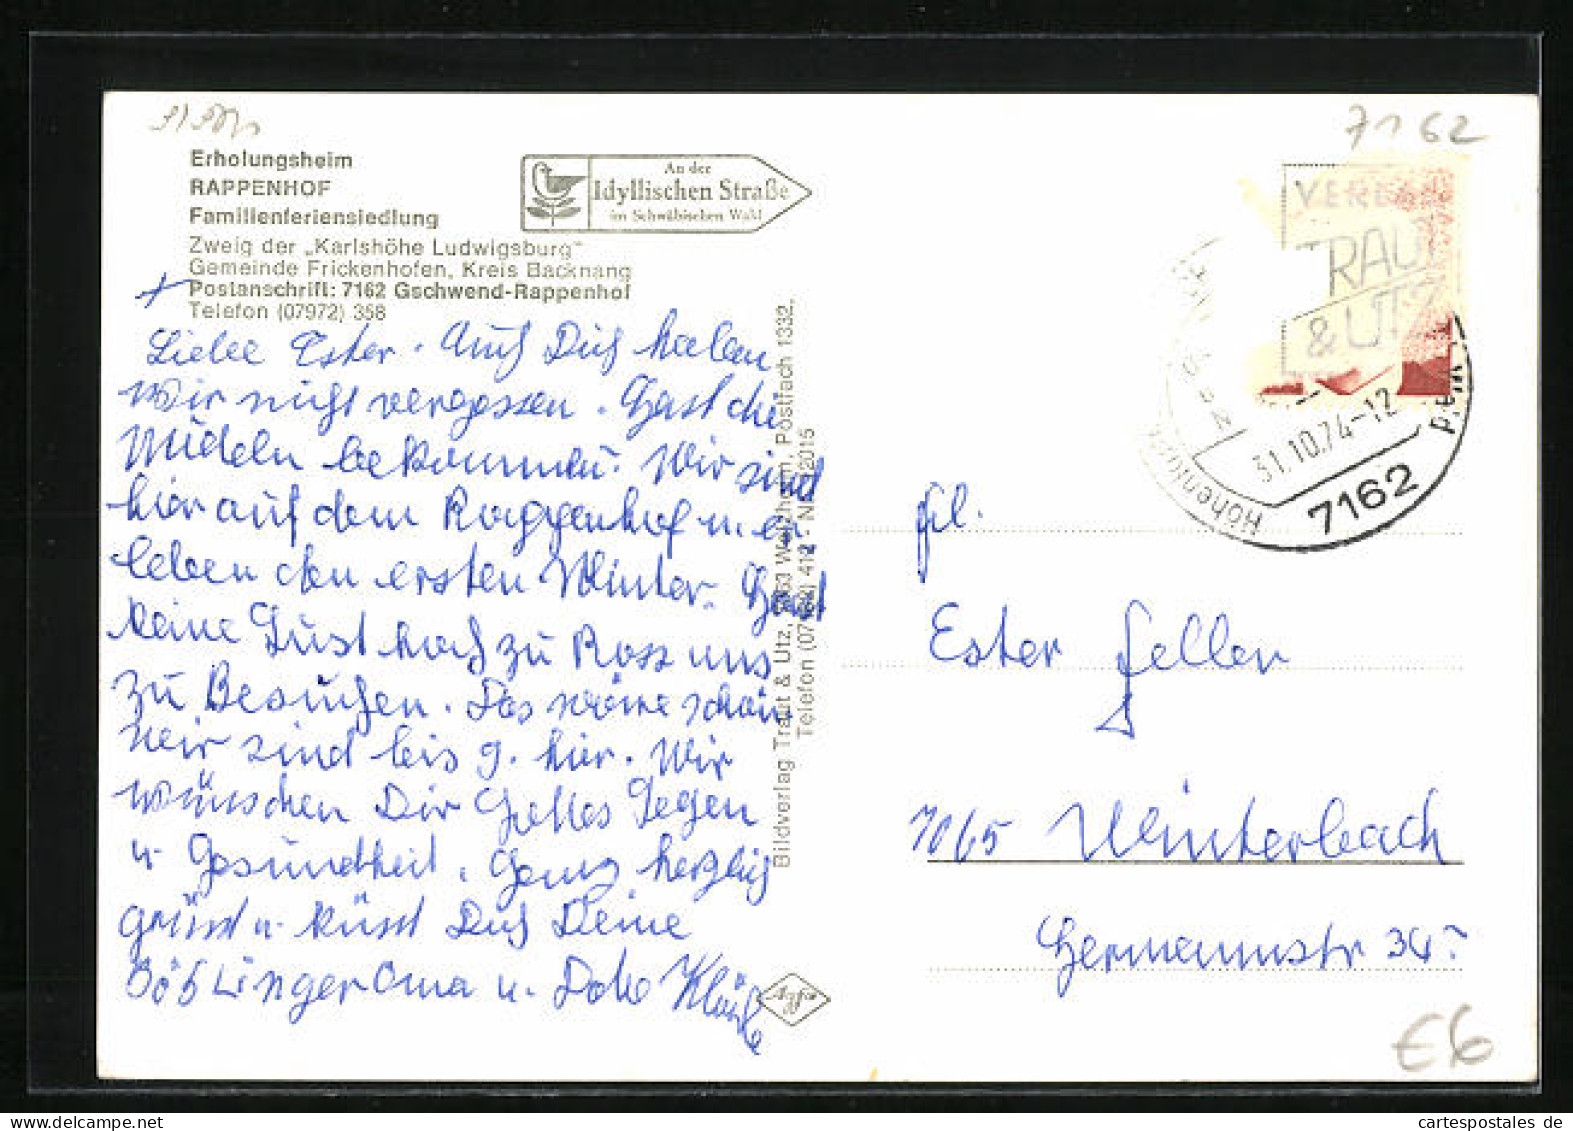 7162
Erholungsheim
RAPPENHOF
Familienferiensiedlung
Zweig der „Karlshöhe Ludwigsburg"
Gemeinde Frickenhofen, Kreis Backnang
Postanschrift: 7162 Gschwend-Rappenhof
Telefon (07972) 358
An der
Idyllischen Straße
im Schwäbischen Wald
Liebe Ester. Auch Dich haben
wir nicht vergessen. Hast die
Nudeln bekommen. Wir sind
hier auf dem Rappenhof u. er
leben den ersten Winter. Hast
keine Lust hoch zu Ross uns
zu Besuchen. Das wäre schön
wir sind bis 9. hier. Wir
wünschen Dir Gottes Segen
u. Gesundheit. Ganz herzlich
grüsst u. küsst Dich Deine
Böblinger Oma u.
Bildverlag Traut & Utz, Welzheim, Postfach 1332,
Telefon
Agfa
VERLAG
TRAUT
& UTZ
31.10.74-12
7162
Höhenluft
Frl.
Ester
7065 Winterbach
Hermannstr
€6
www.cartespostales.de
cartespostales de